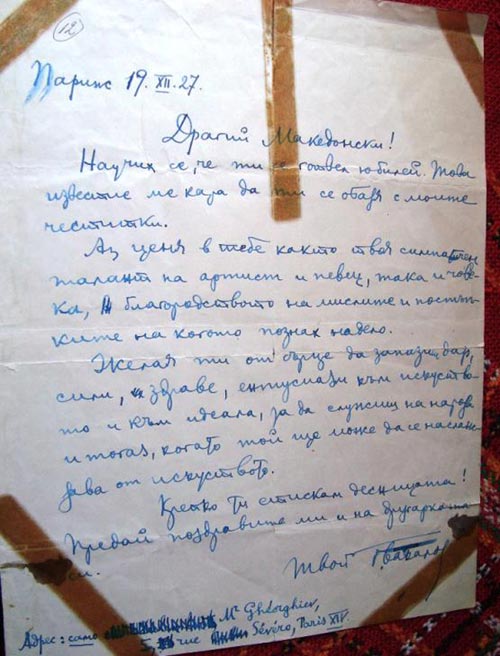 12
Парис 19. XII. 27.
Драгий Македонски!
Научих се, че ти се готвел юбилей. Това
известие ме кара да ти се обадя с моите
честитки.
Аз ценя в тебе както твоя симпатичен
талант на артист и певец, така и чове-
ка, благородството на мислите и постъп-
ките на когото познах на дело.
Желая ти от сърце да запазиш дар,
сили, здраве, ентусиазм към изкуство-
то и към идеала, за да служиш на народа
и тогаз, когато той ще може да се наслаж-
дава от изкуството.
Крепко ти стискам десницата!
Предай поздравите ми и на другарката
си.
Твой
Адрес: само Mr Gheorghiev,
rue Sévéro, Paris XIV.